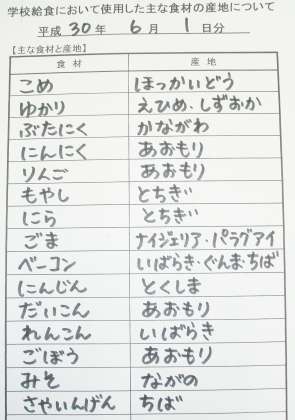 学校給食において使用した主な食材の産地について
平成 30 年 6 月 1 日分
【主な食材と産地】
食材 産地
こめ ほっかいどう
ゆかり えひめ、しずおか
ぶたにく かながわ
にんにく あおもり
りんご あおもり
もやし とちきい
にら とちきい
ごま ナイジェリア・パラグアイ
ベーコン いばらき・ぐんま・ちば
にんじん とくしま
だいこん あおもり
れんこん いばらき
ごぼう あおもり
みそ ながの
さやいんげん ちば